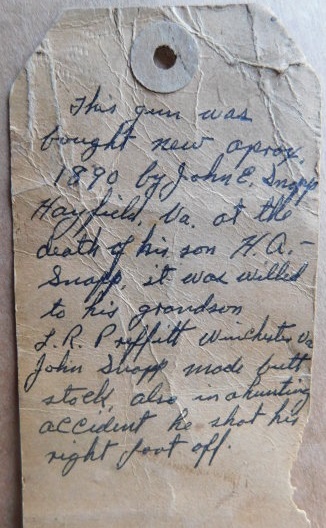 This gun was
bought new aprox.
1890 by John E. Snapp
Hayfield, Va. at the
death of his son H. A. –
Snapp, it was willed
to his grandson
L. R. Proffitt Winchester Va
John Snapp made butt
stock, also in a hunting
accident he shot his
right foot off.